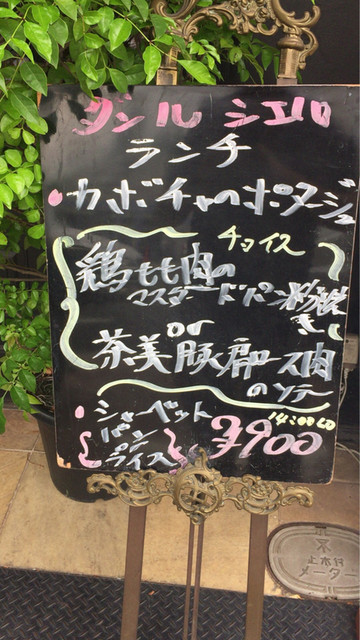 ランチ
カボチャのポタージュ
チョイス
鶏もも肉の
マスタードパン粉焼き
or
茶美豚肩ロース肉
のソテー
シャーベット
パン
ライス
14:00 LO
¥900
メーター